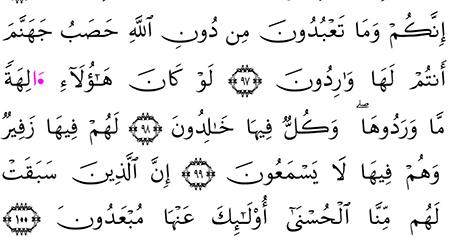 إِنَّكُمْ وَمَا تَعْبُدُونَ مِن دُونِ اَ۬للَّهِ حَصَبُ جَهَنَّمَ
أَنتُمْ لَهَا وَٰرِدُونَ ۝٩٧ لَوْ كَانَ هَٰٓؤُلَآءِ اٰ۬لِهَةٗ
مَّا وَرَدُوهَاۖ وَكُلّٞ فِيهَا خَٰلِدُونَ ۝٩٨ لَهُمْ فِيهَا زَفِيرٞ
وَهُمْ فِيهَا لَا يَسْمَعُونَ ۝٩٩ إِنَّ اَ۬لَّذِينَ سَبَقَتْ
لَهُم مِّنَّا اَ۬لْحُسْنَىٰٓ أُوْلَٰٓئِكَ عَنْهَا مُبْعَدُونَ ۝١٠٠